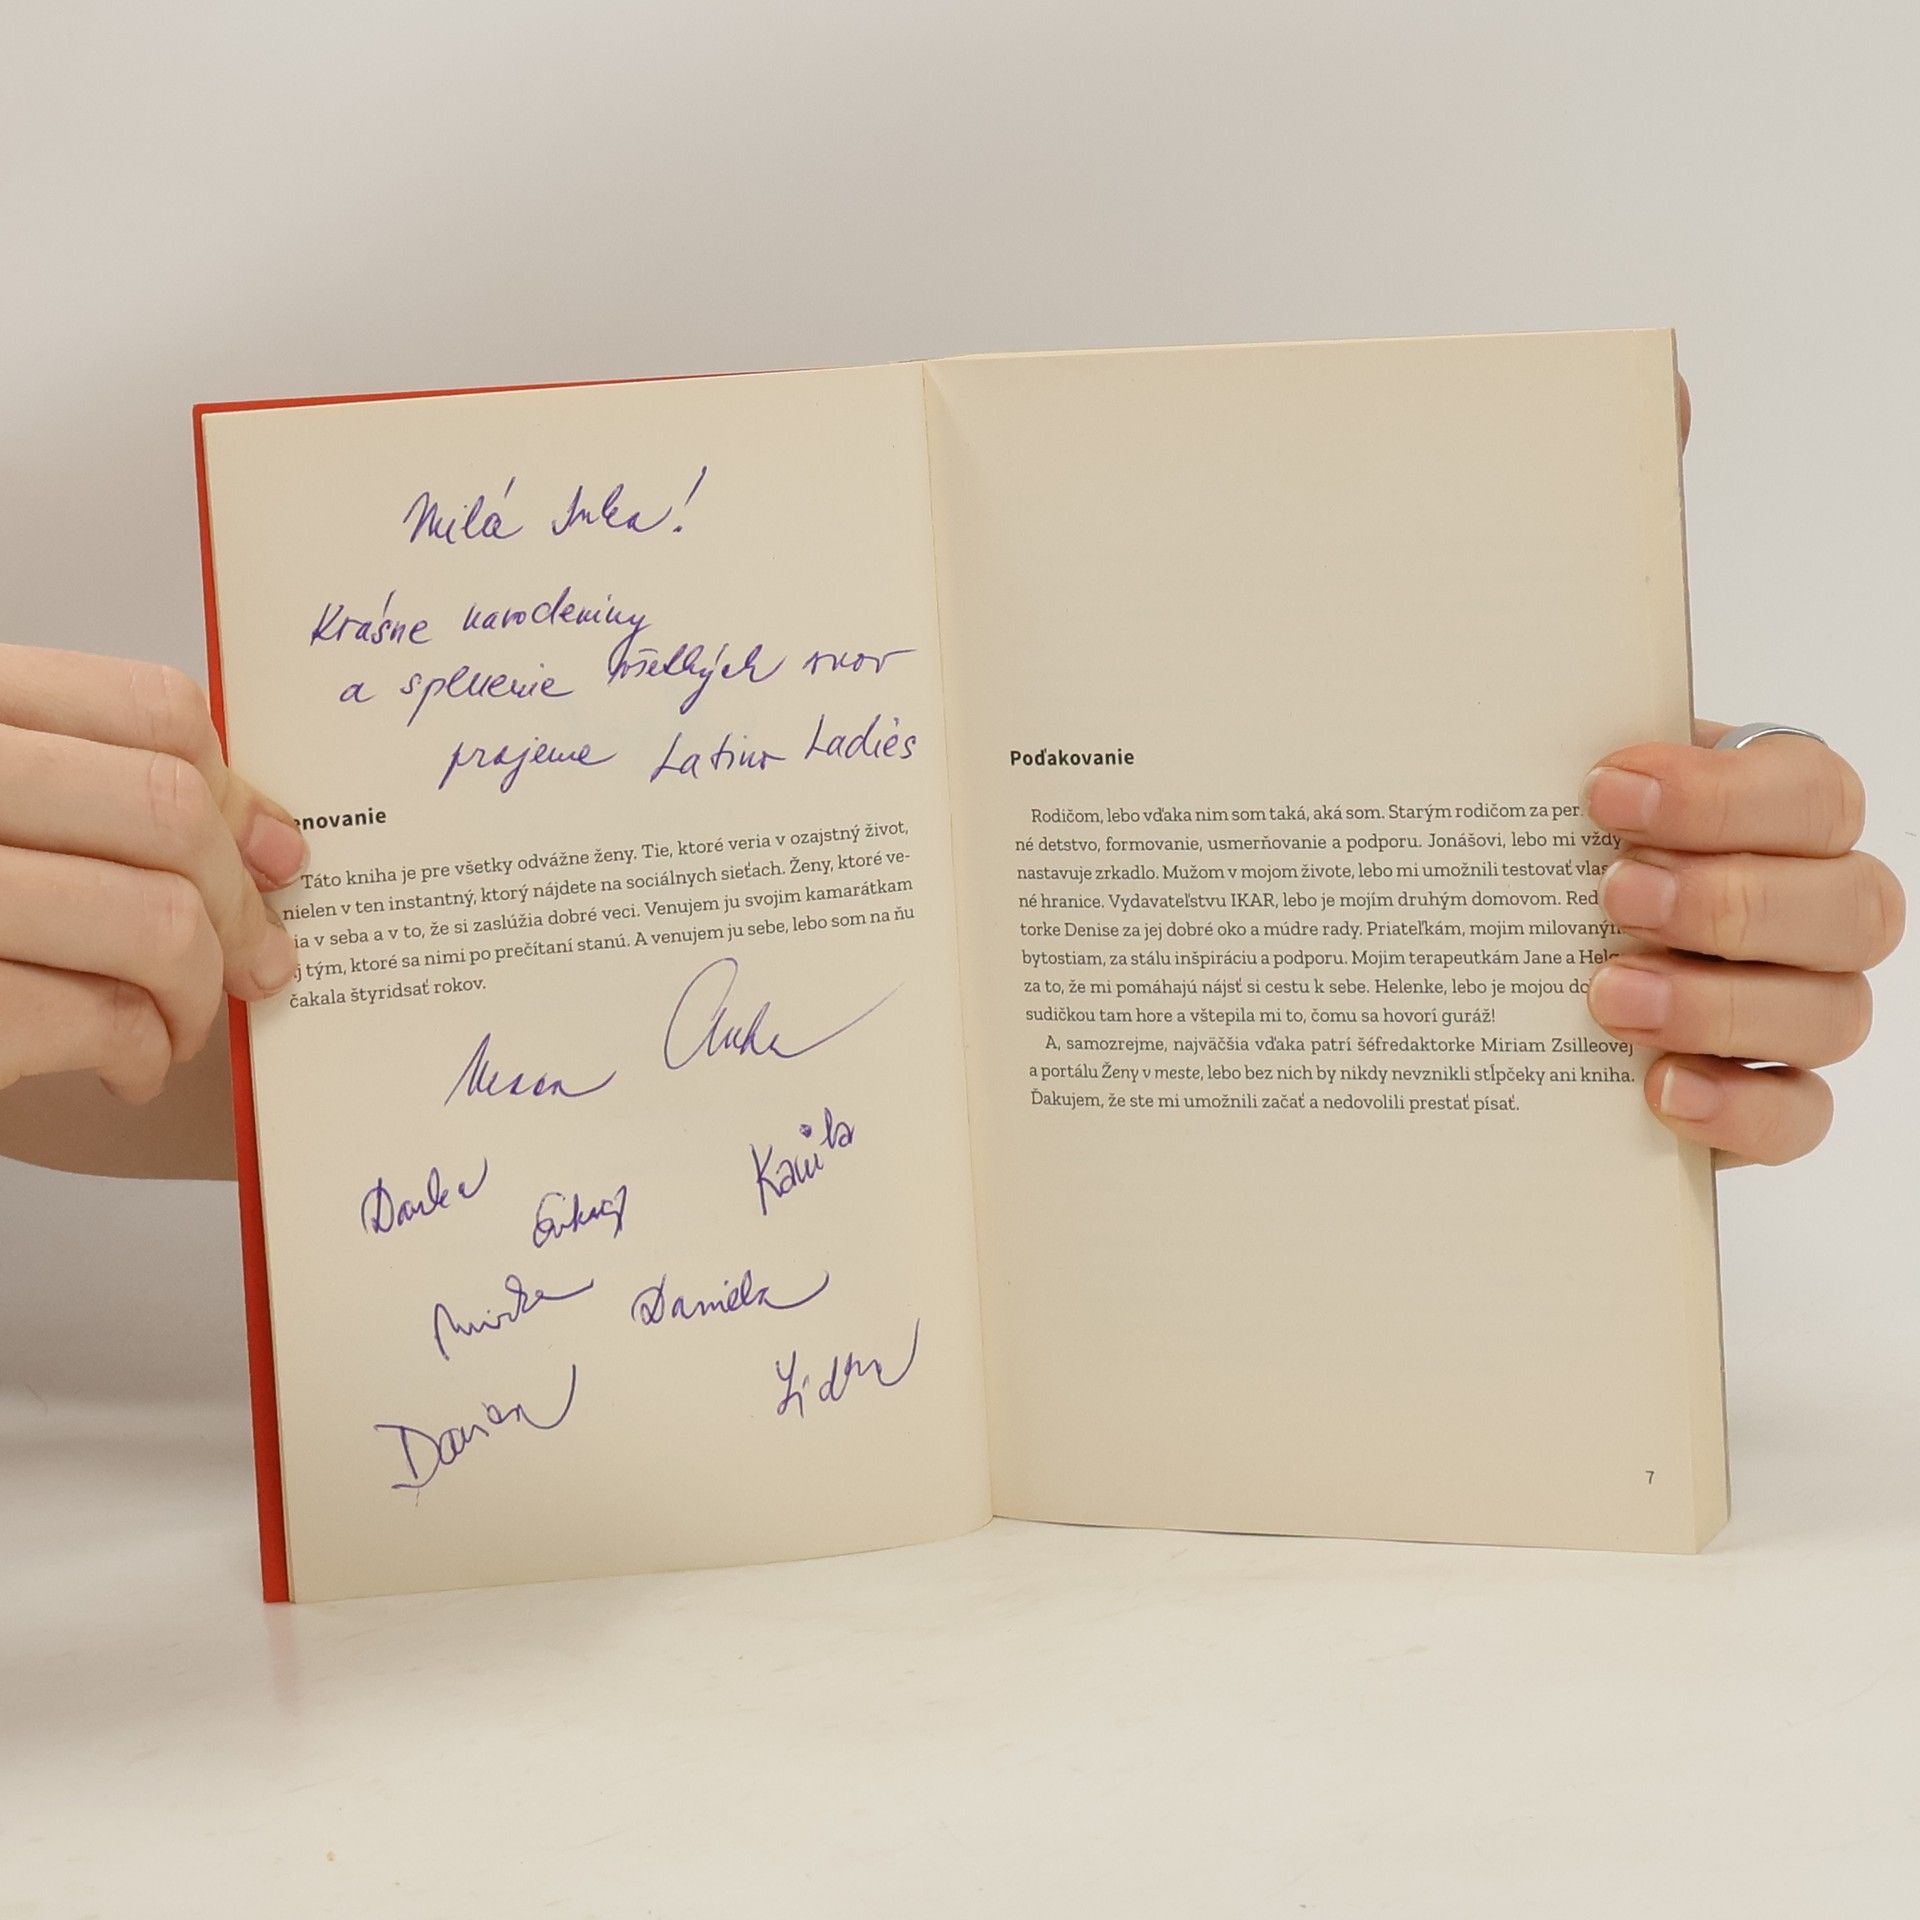 Milá Inka!
Krásne narodeniny
a splnenie všetkých snov
prajeme Latino Ladies
enovanie
Táto kniha je pre všetky odvážne ženy. Tie, ktoré veria v ozajstný život,
nielen v ten instantný, ktorý nájdete na sociálnych sieťach. Ženy, ktoré ve-
ia v seba a v to, že si zaslúžia dobré veci. Venujem ju svojim kamarátkam
j tým, ktoré sa nimi po prečítaní stanú. A venujem ju sebe, lebo som na ňu
čakala štyridsať rokov.
Anka
Danka
Kamila
Mirka Daniela
Lidka
Poďakovanie
Rodičom, lebo vďaka nim som taká, aká som. Starým rodičom za per
né detstvo, formovanie, usmerňovanie a podporu. Jonášovi, lebo mi vždy
nastavuje zrkadlo. Mužom v mojom živote, lebo mi umožnili testovať vlas
né hranice. Vydavateľstvu IKAR, lebo je mojím druhým domovom. Red
torke Denise za jej dobré oko a múdre rady. Priateľkám, mojim milovaným
bytostiam, za stálu inšpiráciu a podporu. Mojim terapeutkám Jane a Hel
za to, že mi pomáhajú nájsť si cestu k sebe. Helenke, lebo je mojou do
sudičkou tam hore a vštepila mi to, čomu sa hovorí guráž!
A, samozrejme, najväčšia vďaka patrí šéfredaktorke Miriam Zsilleovej
a portálu Ženy v meste, lebo bez nich by nikdy nevznikli stĺpčeky ani kniha.
Ďakujem, že ste mi umožnili začať a nedovolili prestať písať.
7